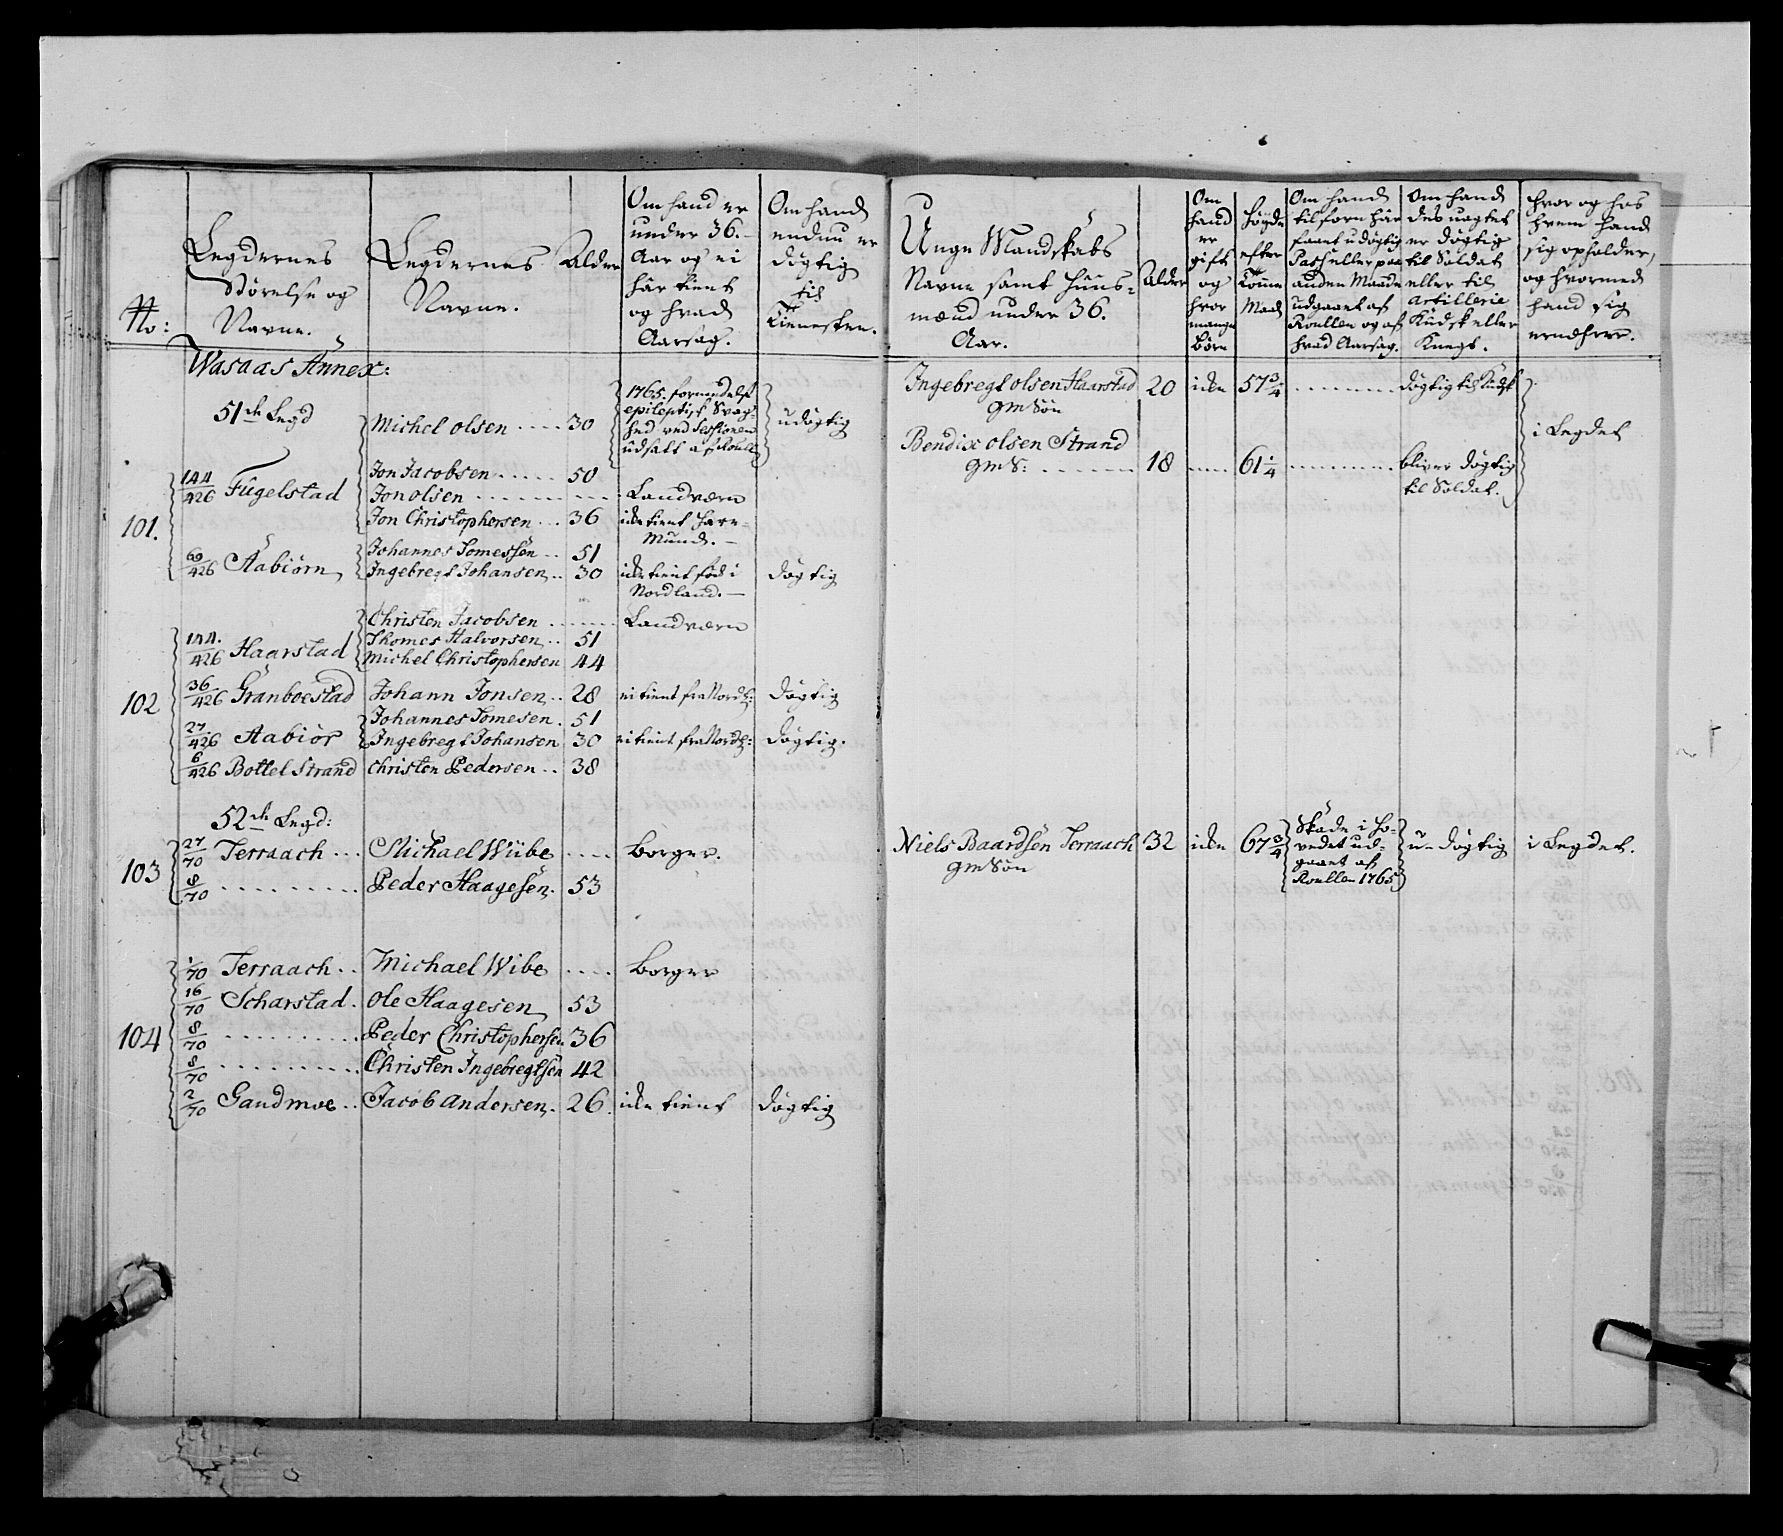 No:
Legdernes
Störelse og
Navne.
Legdernes
Navne.
Alder
Om hand er
under 36.
Aar og ei
har tient
og hvad
Aarsag.
Om hand
endnu er
dögtig
til
Tienesten.
Wasaas Annex:
51de Legd
101.
144/426 Fugelstad
Michel olsen ..... 30
1765. formedelst
epileptisk Svag-
hed ved Sessionen
udsatt af Roull
udögtig
Jon Jacobsen ..... 50
Jon olsen ........ Landværn
Jon Christophersen ... 36 ikke tient
69/426 Aabiörn
Johannes Tomessön .. 51
Ingebregt Johansen .. 30 ikke tient föd i dögtig
Nordland. —
102
144./426 Haarstad
Christen Jacobsen ....... Landværn
Thomes Halvorsen .. 51
Michel Christophersen 44
36/426 Granboestad Johann Jonsen .. 28 ei tient fra Nordl: dögtig
27/426 Aabiör
Johannes Tomesen . 51
Ingebregt Johansen 30 ei tient fra Nordl: dögtig.
6/426 Bottel Strand Christen Pedersen .. 38
52de Legd:
103
27/70 Terraach ... Michael Wiibe .... Borger.
8/70 .......... Peder Haagesen. 53
104
1/70 Terraach .. Michael Wibe .... Borger
16/70 Scharstad . Ole Haagesen 53
8/70 .......... Peder Christophersen 36
8/70 .......... Christen Ingebregtsen 42
2/70 Sandmoe .. Jacob Andersen. 26. ikke tient dögtig
Unge Mandskabs
Navne samt Huus-
mænd under 36.
Aar.
Alder
Om
hand
er
gift
og
hvor
mange
Börn
Höyde
efter
Tomme
Maal
Om hand
tilforn har
faaet udögtig
Pass eller paa
anden Maade
udgaaet af
Roullen og af
hvad Aarsag.
Om hand
des uagtet
er dögtig
til Soldat
eller til
Artillerie
Kudsk eller
Knegt.
Hvor og hos
hvem hand
sig opholder,
og hvormed
hand sig
ernærer.
Ingebregt olsen Haarstad 20 ikke 57 3/4 ....... dögtig til Kudsk
gm Sön
i Legdet
Bendix olsen Strand
gm S: ........ 18 .... 61 1/4 .......... bliver dögtig
til Soldat.
Niels Baardsön Terraach 32 ikke 67 3/4
gm Sön
Skade i Ho-
vedet ud-
gaaet af
Roullen 1765
u-dögtig i Legdet.